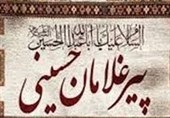 السلام علیک یا اباعبدالله الحسین
پیرغلامان حسینی